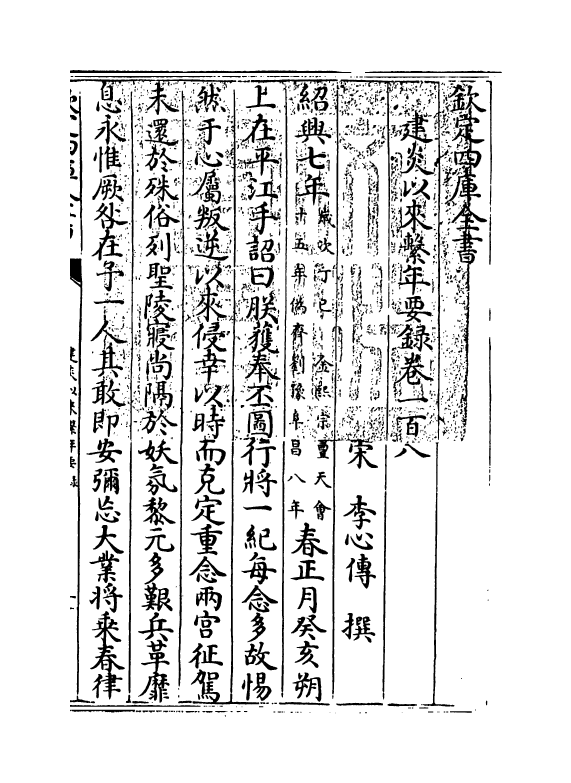 欽定四庫全書
建炎以來繫年要録卷一百八
宋 李心傳 撰
紹興七年歲次丁巳金熙宗亶天會十五年偽齊劉豫阜昌八年春正月癸亥朔
上在平江手詔曰朕獲奉丕圖行將一紀每念多故惕
然于心屬叛逆以來侵幸以時而克定重念兩宫征駕
未還於殊俗列聖陵寢尚隔於妖氛黎元多艱兵革靡
息永惟厥咎在予一人其敢即安彌忘大業將乗春律